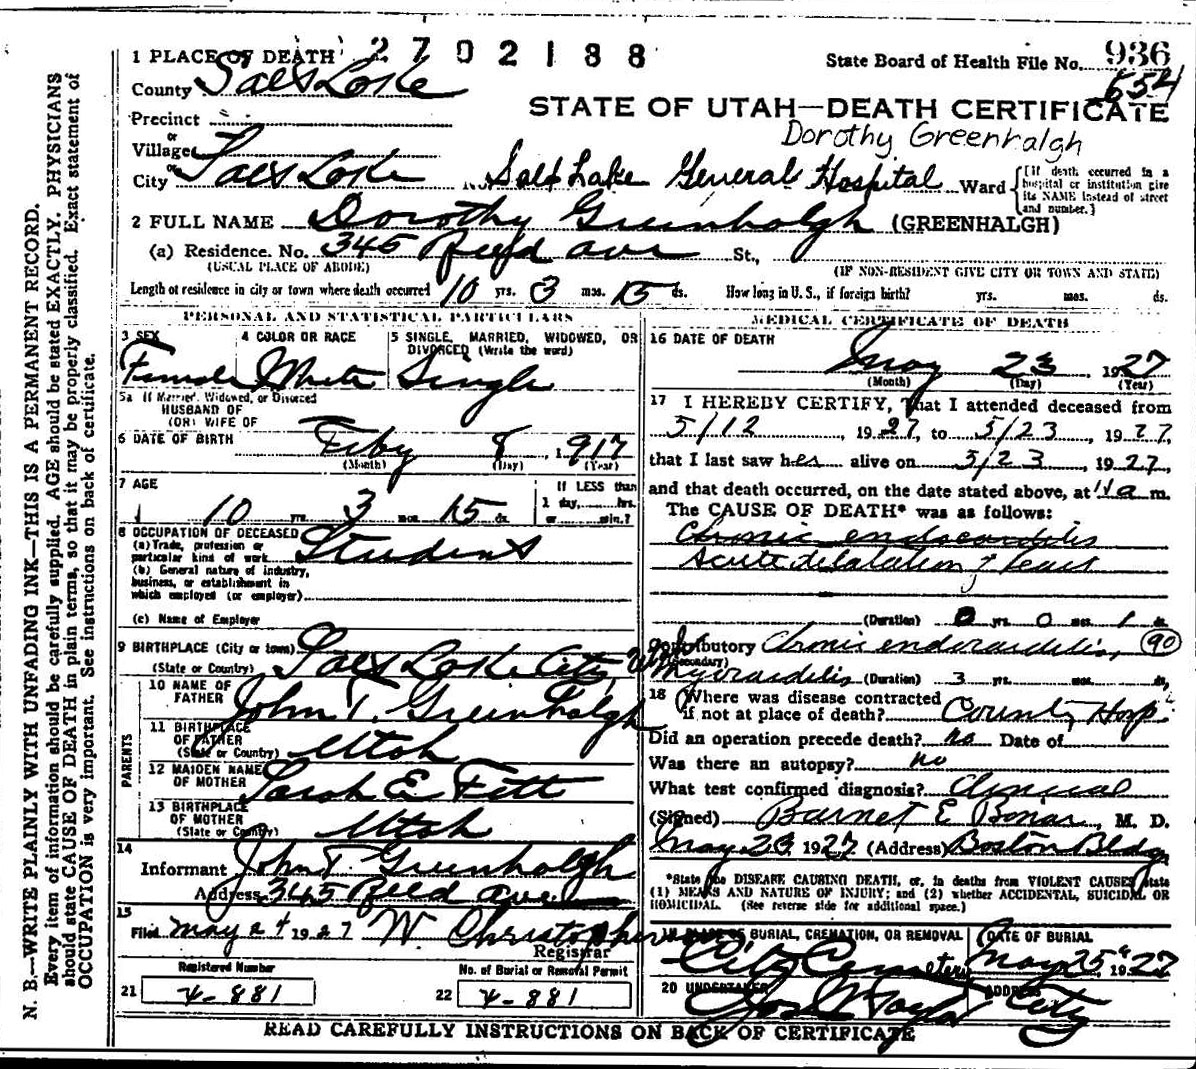 2702188
1 PLACE OF DEATH
State Board of Health File No. 936
654
County Salt Lake
STATE OF UTAH—DEATH CERTIFICATE
Precinct
Dorothy Greenhalgh
or
Village
or
City Salt Lake No. Salt Lake General Hospital Ward
[If death occurred in a
hospital or institution give
its NAME instead of street
and number.]
2 FULL NAME Dorothy Greenhalgh (GREENHALGH)
(a) Residence. No. 345 Reed ave St.,
(USUAL PLACE OF ABODE) (IF NON-RESIDENT GIVE CITY OR TOWN AND STATE)
Length of residence in city or town where death occurred 10 yrs. 3 mos. 15 ds. How long in U. S., if foreign birth? yrs. mos. ds.
PERSONAL AND STATISTICAL PARTICULARS
3 SEX
Female
4 COLOR OR RACE
White
5 SINGLE, MARRIED, WIDOWED, OR
DIVORCED (Write the word)
Single
5a If Married, Widowed, or Divorced
HUSBAND OF
(OR) WIFE OF
6 DATE OF BIRTH Feby 8 1917
(Month) (Day) (Year)
7 AGE
10 yrs. 3 mos. 15 ds.
If LESS than
1 day, hrs.
or min.?
8 OCCUPATION OF DECEASED
(a) Trade, profession or
particular kind of work Student
(b) General nature of industry,
business, or establishment in
which employed (or employer)
(c) Name of Employer
9 BIRTHPLACE (City or town) Salt Lake City Utah
(State or Country)
PARENTS
10 NAME OF
FATHER John T. Greenhalgh
11 BIRTHPLACE
OF FATHER Utah
(State or Country)
12 MAIDEN NAME
OF MOTHER Sarah E Fitt
13 BIRTHPLACE
OF MOTHER Utah
(State or Country)
14
Informant John T Greenhalgh
Address 345 Reed ave
15
Filed May 24 1927 W Christopherson
Registrar
Registered Number
21 4-881
No. of Burial or Removal Permit
22 4-881
MEDICAL CERTIFICATE OF DEATH
16 DATE OF DEATH
May 23 1927
(Month) (Day) (Year)
17 I HEREBY CERTIFY, That I attended deceased from
5/12, 1927, to 5/23, 1927,
that I last saw her alive on 5/23, 1927,
and that death occurred, on the date stated above, at 11a m.
The CAUSE OF DEATH* was as follows:
Chronic endocarditis
Acute dilatation of heart
(Duration) 0 yrs. 0 mos. 1 ds.
Contributory Chronic endocarditis, 90
(Secondary)
Myocarditis (Duration) 3 yrs. mos. ds.
18 (Where was disease contracted
if not at place of death? County Hosp.
Did an operation precede death? no Date of
Was there an autopsy? no
What test confirmed diagnosis? Clinical
(Signed) Burnet E Bonar, M. D.
May 23, 1927 (Address) Boston Bldg
*State the DISEASE CAUSING DEATH, or, in deaths from VIOLENT CAUSES, state
(1) MEANS AND NATURE OF INJURY; and (2) whether ACCIDENTAL, SUICIDAL OR
HOMICIDAL. (See reverse side for additional space.)
19 PLACE OF BURIAL, CREMATION, OR REMOVAL
City Cemetery
DATE OF BURIAL
May 25 1927
20 UNDERTAKER
Jos Wm Taylor
ADDRESS
City
READ CAREFULLY INSTRUCTIONS ON BACK OF CERTIFICATE
N. B.—WRITE PLAINLY WITH UNFADING INK—THIS IS A PERMANENT RECORD.
Every item of information should be carefully supplied. AGE should be stated EXACTLY. PHYSICIANS
should state CAUSE OF DEATH in plain terms, so that it may be properly classified. Exact statement of
OCCUPATION is very important. See instructions on back of certificate.